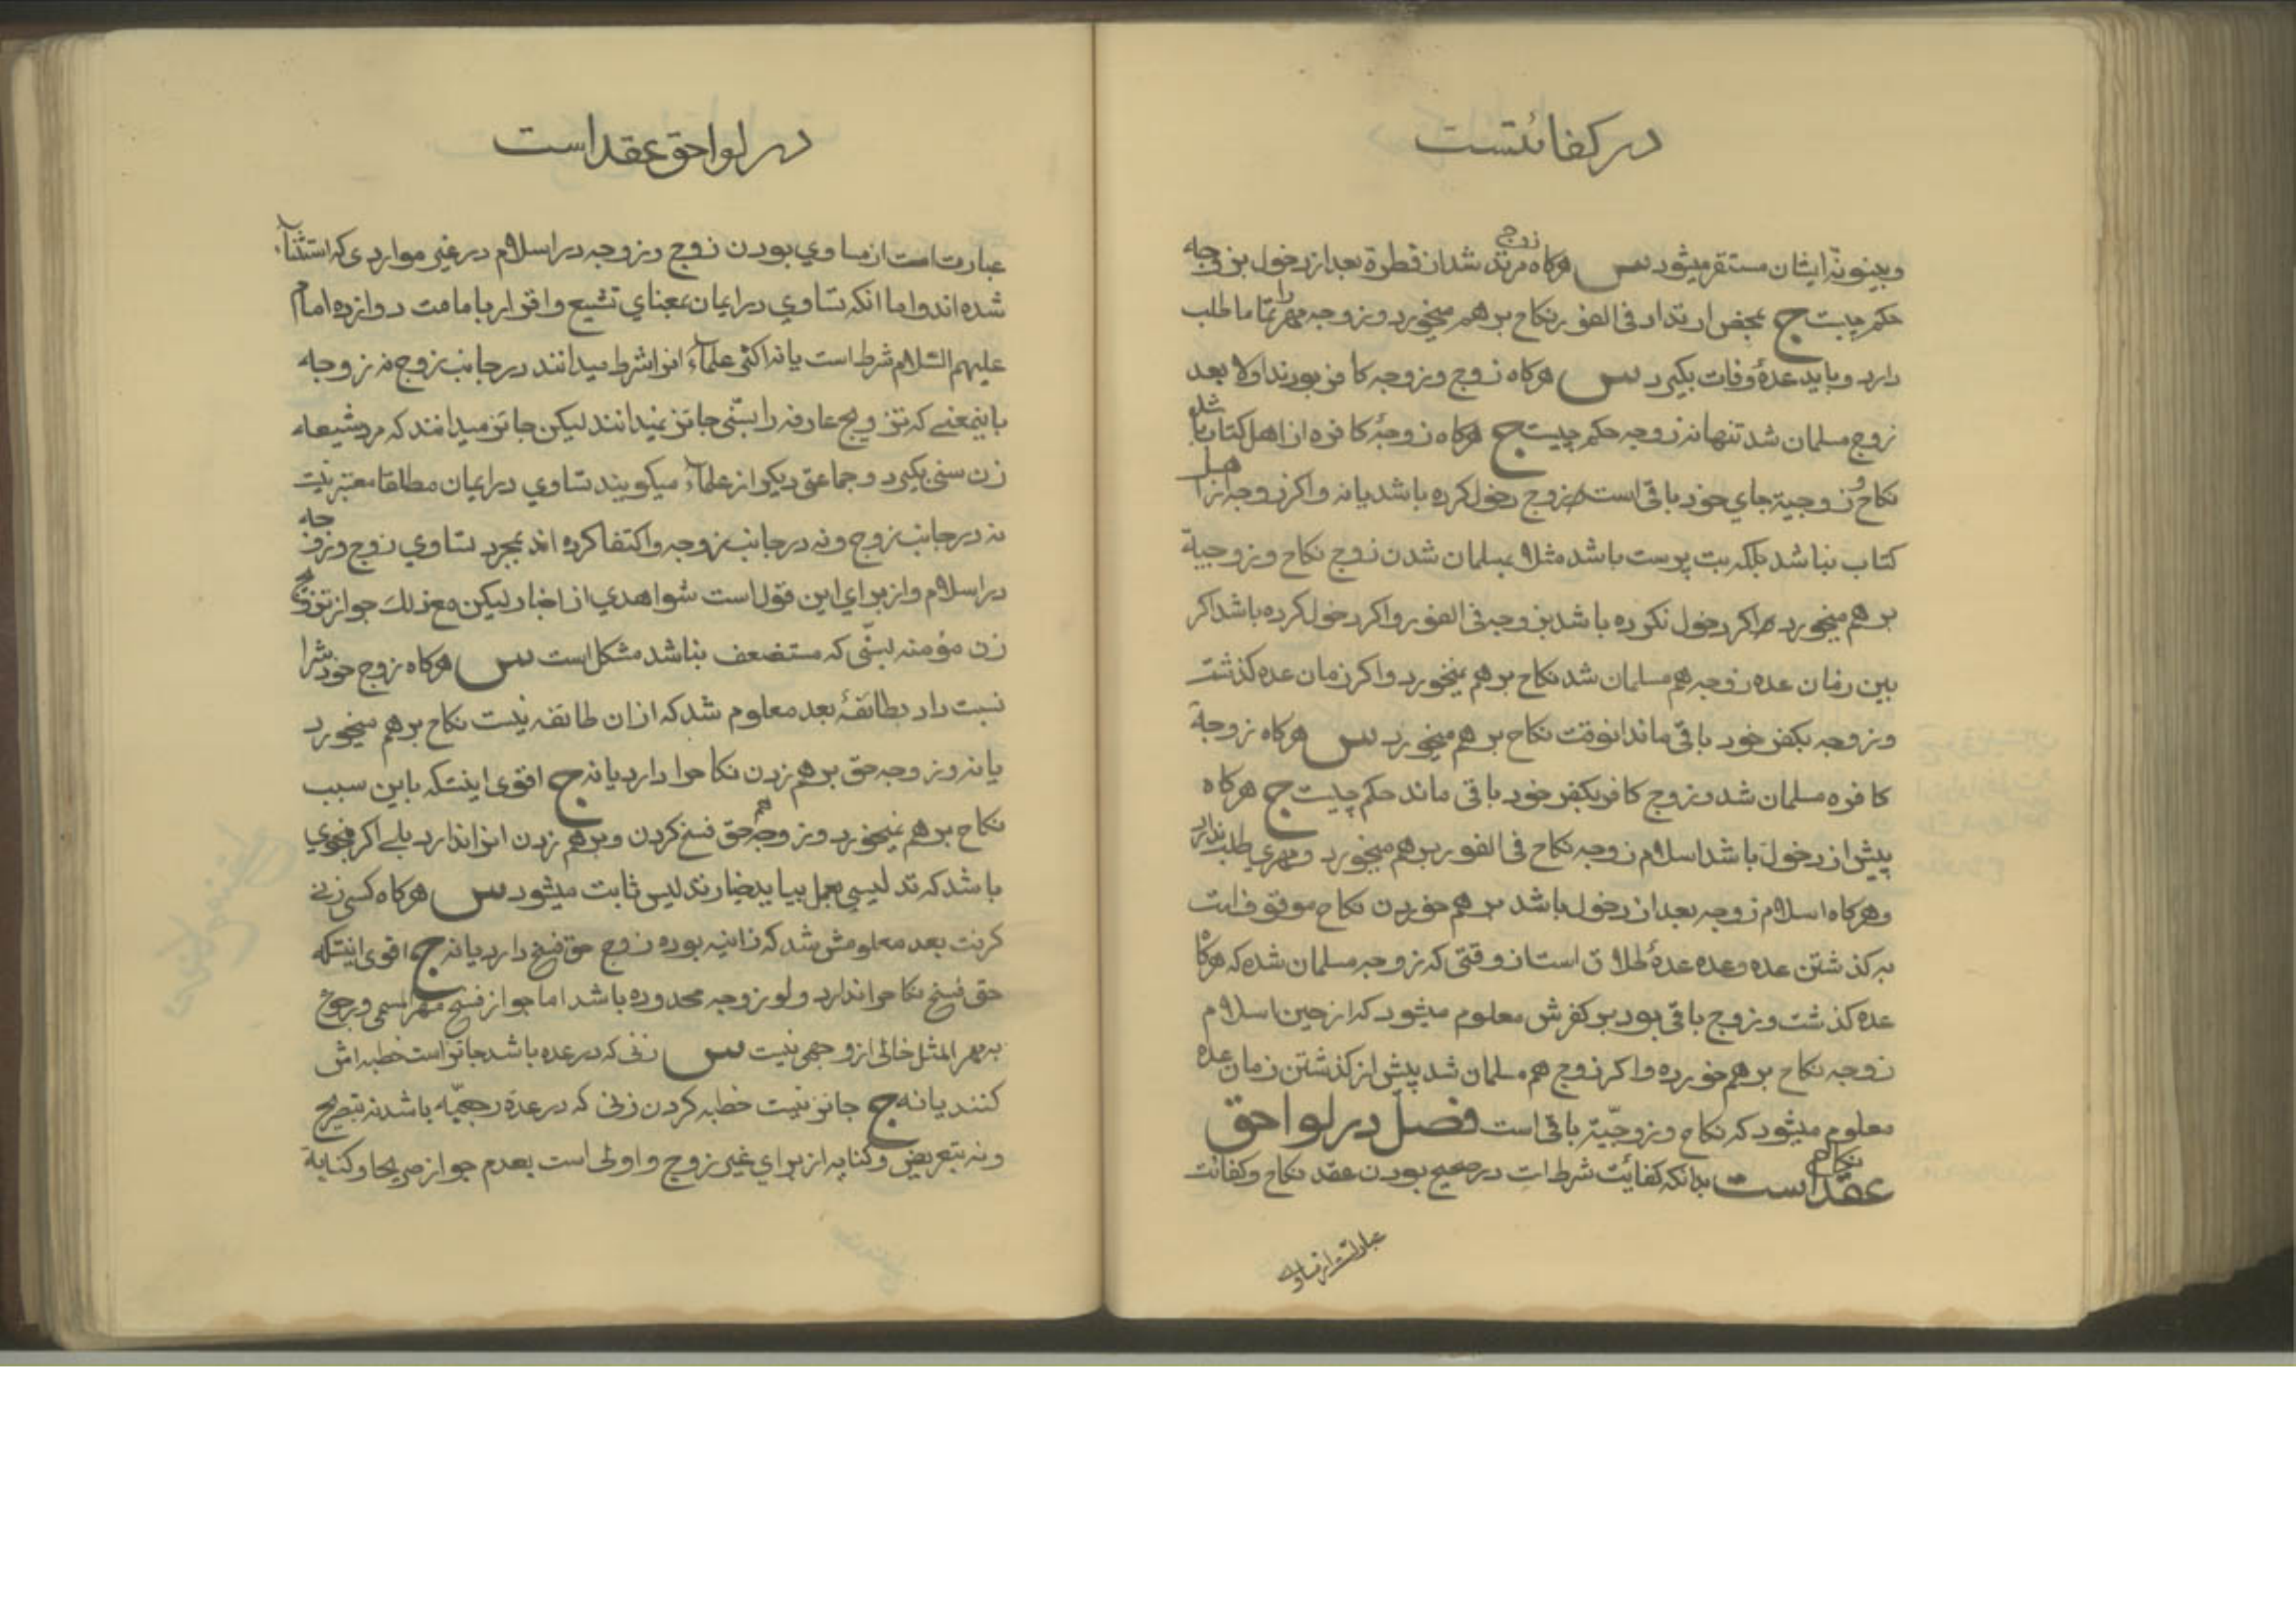 در کفائتست
و بینونة ایشان مستقر میشود س هرکاه زوج مرتد شد از فطرة بعد از دخول بزوجه
حکم چیست ج بمحض ارتداد فی الفور نکاح برهم میخورد و زوجه مهر را تماما طلب
دارد و باید عدهٔ وفات بکیرد س هرکاه زوج و زوجه کافر بودند اولا بعد
زوج مسلمان شد تنها نه زوجه حکم چیست ج هرکاه زوجهٔ کافره از اهل کتاب باشد
نکاح و زوجیة جای خود باقی است زوج دخول کرده باشد یا نه و اکر زوجه از اهل
کتاب نباشد بلکه بت پرست باشد مثلا بمسلمان شدن زوج نکاح و زوجیة
برهم میخورد اکر دخول نکرده باشد بزوجه فی الفور و اکر دخول کرده باشد اکر
بین زمان عده زوجه هم مسلمان شد نکاح برهم نمیخورد و اکر زمان عده کذشت
و زوجه بکفر خود باقی ماند انوقت نکاح برهم میخورد س هرکاه زوجهٔ
کافره مسلمان شد و زوج کافر بکفر خود باقی ماند حکم چیست ج هرکاه
پیش از دخول باشد اسلام زوجه نکاح فی الفور برهم میخورد و مهری طلب ندارد
و هرکاه اسلام زوجه بعد از دخول باشد برهم خوردن نکاح موقوفست
به کذشتن عده و عده عدهٔ طلاق است از وقتی که زوجه مسلمان شده که هرکاه
عده کذشت و زوج باقی بود بر کفرش معلوم میشود که از حین اسلام
زوجه نکاح برهم خورده و اکر زوج هم مسلمان شد پیش از کذشتن زمان عده
معلوم میشود که نکاح و زوجیّة باقی است فصل در لواحق
عقد نکاح است بدانکه کفائت شرط است در صحیح بودن عقد نکاح و کفائت
عبارتست از مساوی
در لواحق عقد است
عبارت است از مساوی بودن زوج و زوجه در اسلام در غیر مواردی که استثناء
شده اند و اما انکه تساوی در ایمان بمعنای تشیع و اقرار بامامت دوازده امام
علیهم السّلام شرط است یا نه اکثر علماء انرا شرط میدانند در جانب زوج نه زوجه
باینمعنے که تزویج عارفه را بسنّی جائز نمیدانند لیکن جائز میدانند که مرد شیعه
زن سنی بکیرد و جماعتی دیکر از علماء میکویند تساوی در ایمان مطلقا معتبر نیست
نه در جانب زوج و نه در جانب زوجه و اکتفا کرده اند بمجرد تساوی زوج و زوجه
در اسلام و از برای این قول است شواهدی از اخبار لیکن مع ذلک جواز تزویج
زن مؤمنه بسنّی که مستضعف نباشد مشکل است س هرکاه زوج خودش را
نسبت داد بطائفهٔ بعد معلوم شد که از ان طائفه نیست نکاح برهم میخورد
یا نه و زوجه حق برهم زدن نکاح را دارد یا نه ج اقوی اینستکه باین سبب
نکاح برهم نمیخورد و زوجه هم حق فسخ کردن و برهم زدن انرا ندارد بلے اکر بنحوی
باشد که تدلیس بعمل بیاید خیار تدلیس ثابت میشود س هرکاه کسی زنے
کرفت بعد معلومش شد که زانیه بوده زوج حق فسخ دارد یا نه ج اقوی اینستکه
حق فسخ نکاح را ندارد و لو زوجه محدوده باشد اما جواز فسخ مهر المسمی و رجوع
به مهر المثل خالی از وجهی نیست س زنی که در عده باشد جائز است خطبه اش
کنند یا نه ج جائز نیست خطبه کردن زنی که در عدهٔ رجعیّه باشد نه بتصریح
و نه بتعریض و کنایه از برای غیر زوج و اولی است بعدم جواز صریحا و کنایة